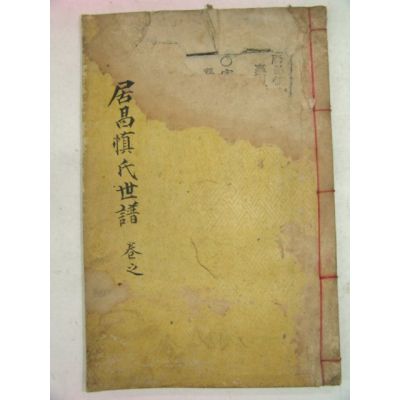 居昌愼氏世譜
卷之